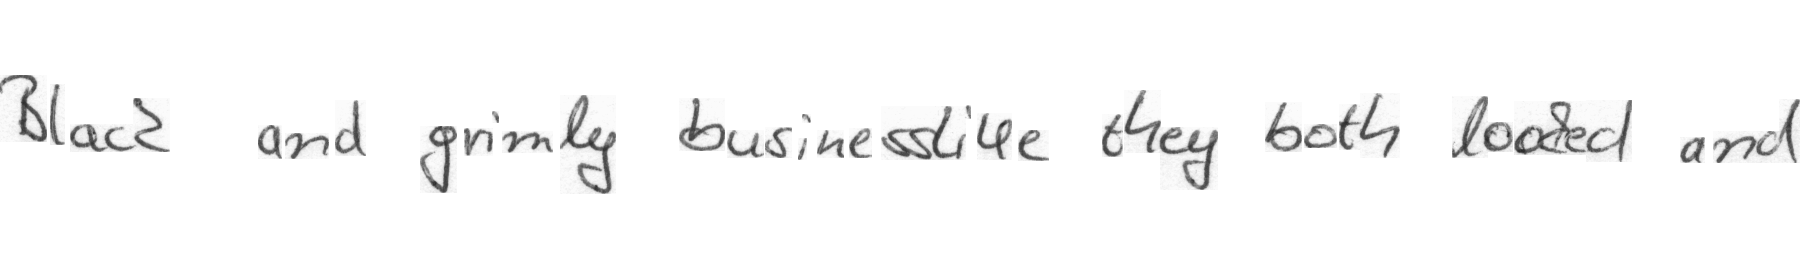 Black and grimly businesslike they both looked and